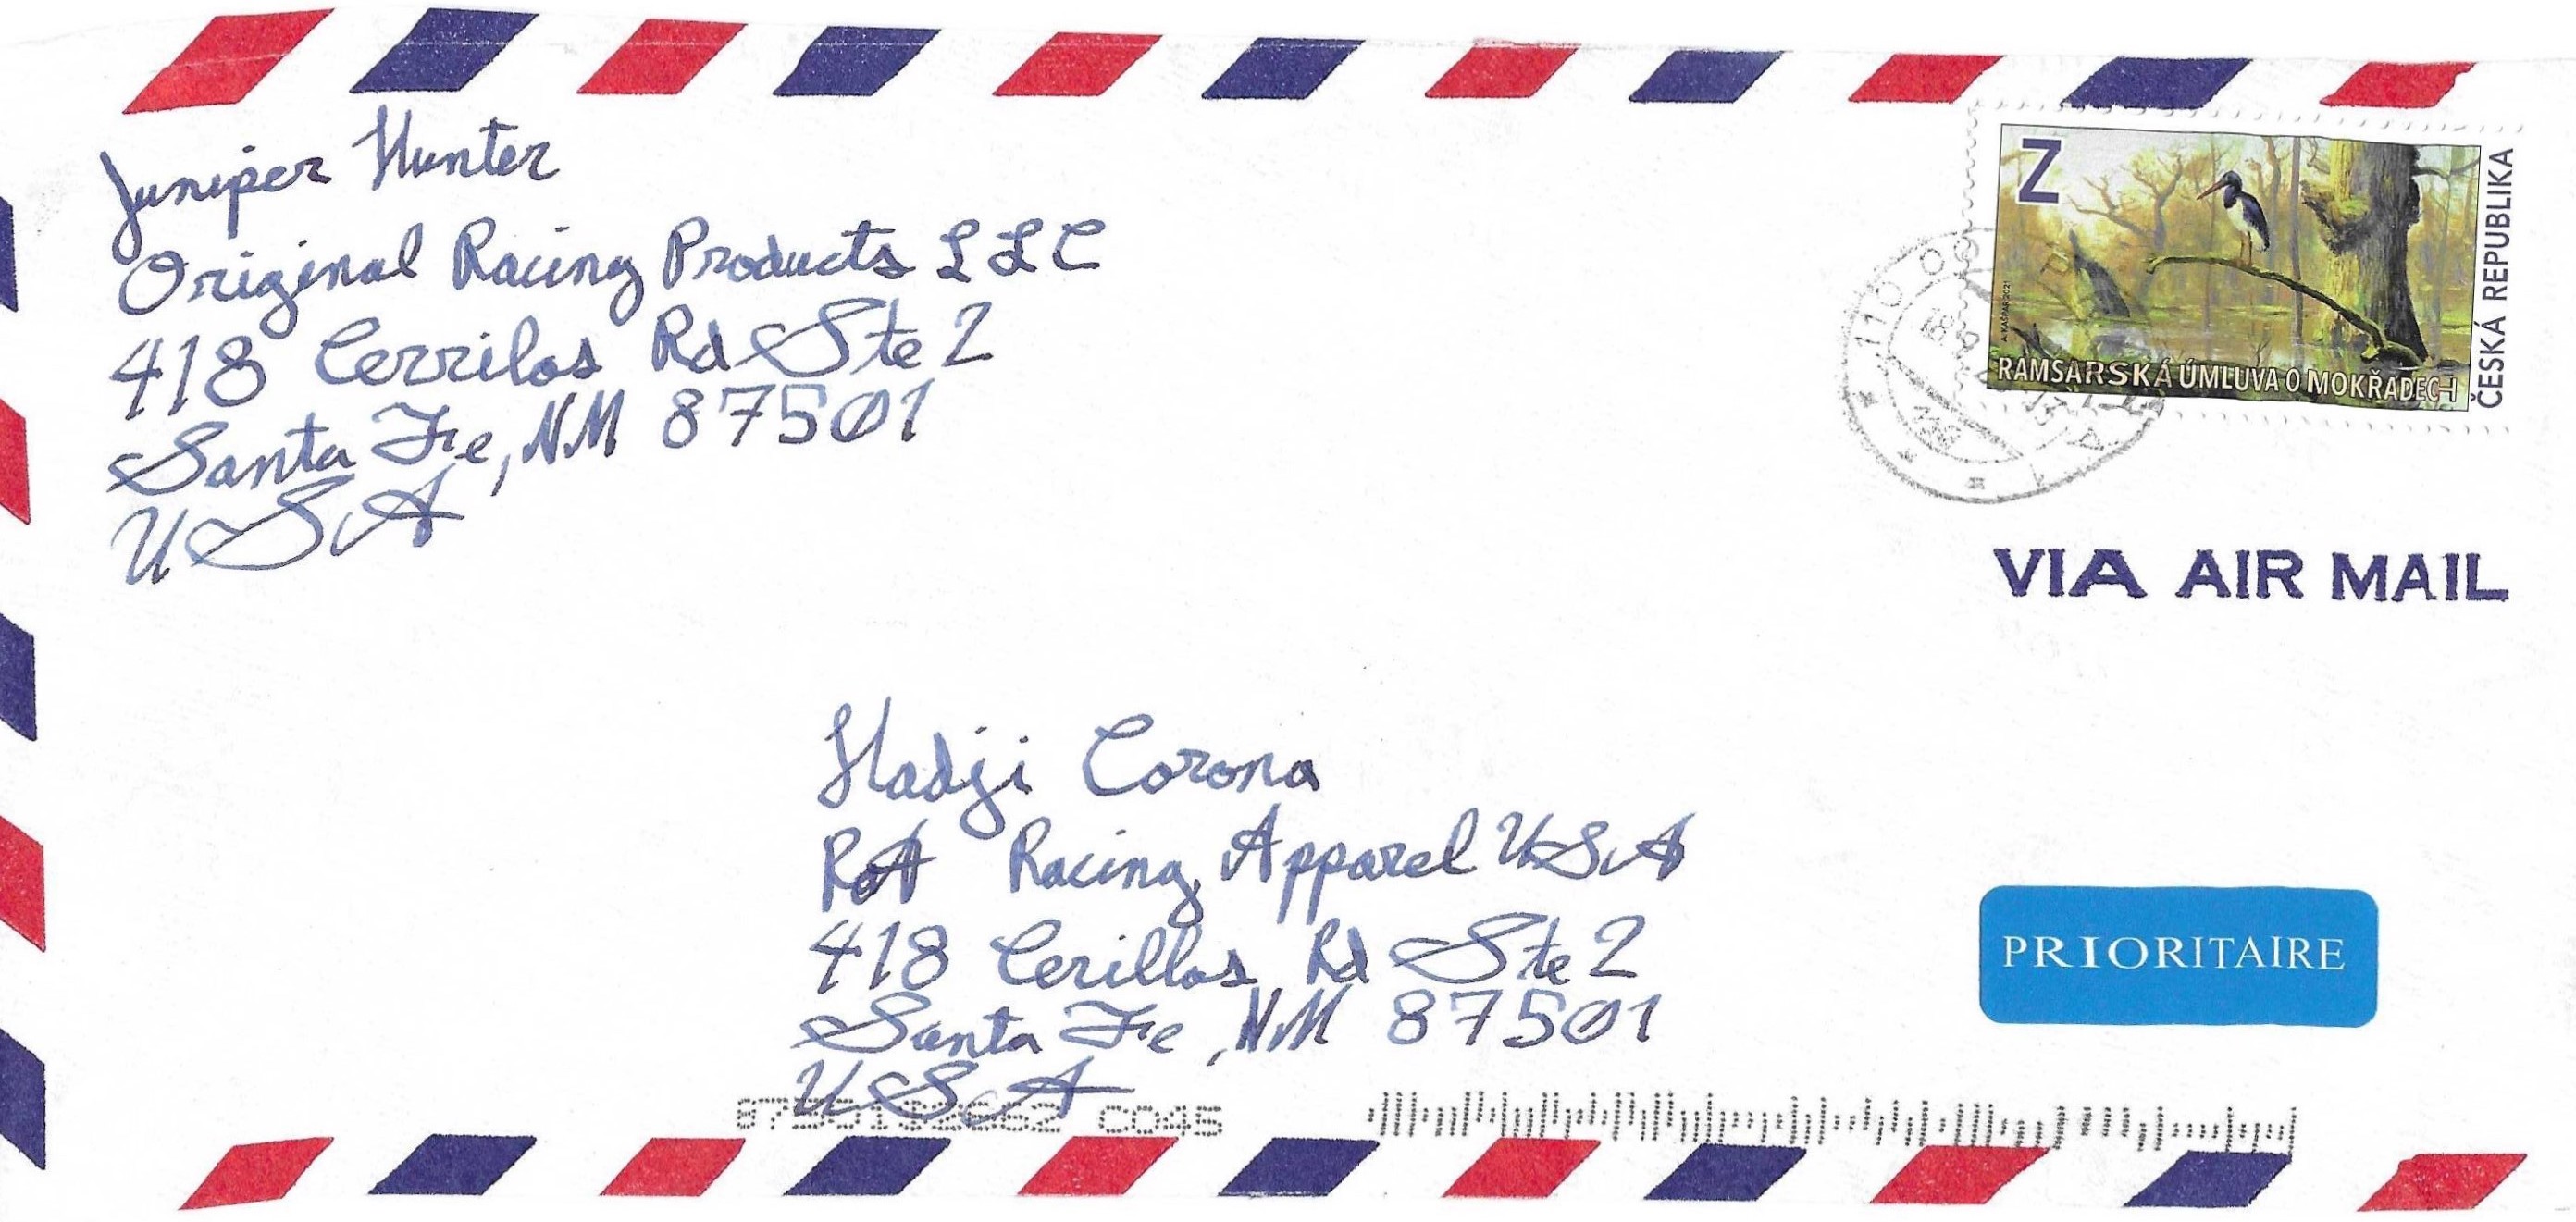 Juniper Hunter
Original Racing Products LLC
418 Cerrilos Rd Ste 2
Santa Fe, NM 87501
USA
Z
ČESKÁ REPUBLIKA
A. KAŠPAR 2021
RAMSARSKÁ ÚMLUVA O MOKŘADECH
110 00
VIA AIR MAIL
Hadji Corona
RoA Racing Apparel USA
418 Cerillos Rd Ste 2
Santa Fe, NM 87501
USA
PRIORITAIRE
8750132662 C045